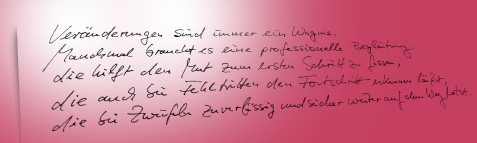 Veränderungen sind immer ein Wagnis.
Manchmal braucht es eine professionelle Begleitung,
die hilft den Mut zum ersten Schritt zu fassen,
die auch bei Fehltritten den Fortschritt erkennen läßt,
die bei Zweifeln zuverlässig und sicher weiter auf dem Weg leitet.